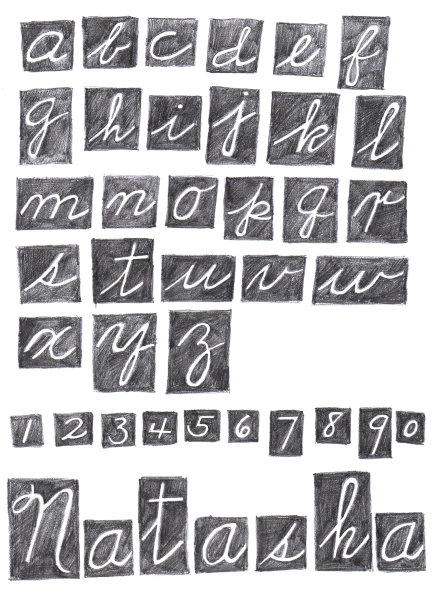 a b c d e f
g h i j k l
m n o p q r
s t u v w
x y z
1 2 3 4 5 6 7 8 9 0
Natasha